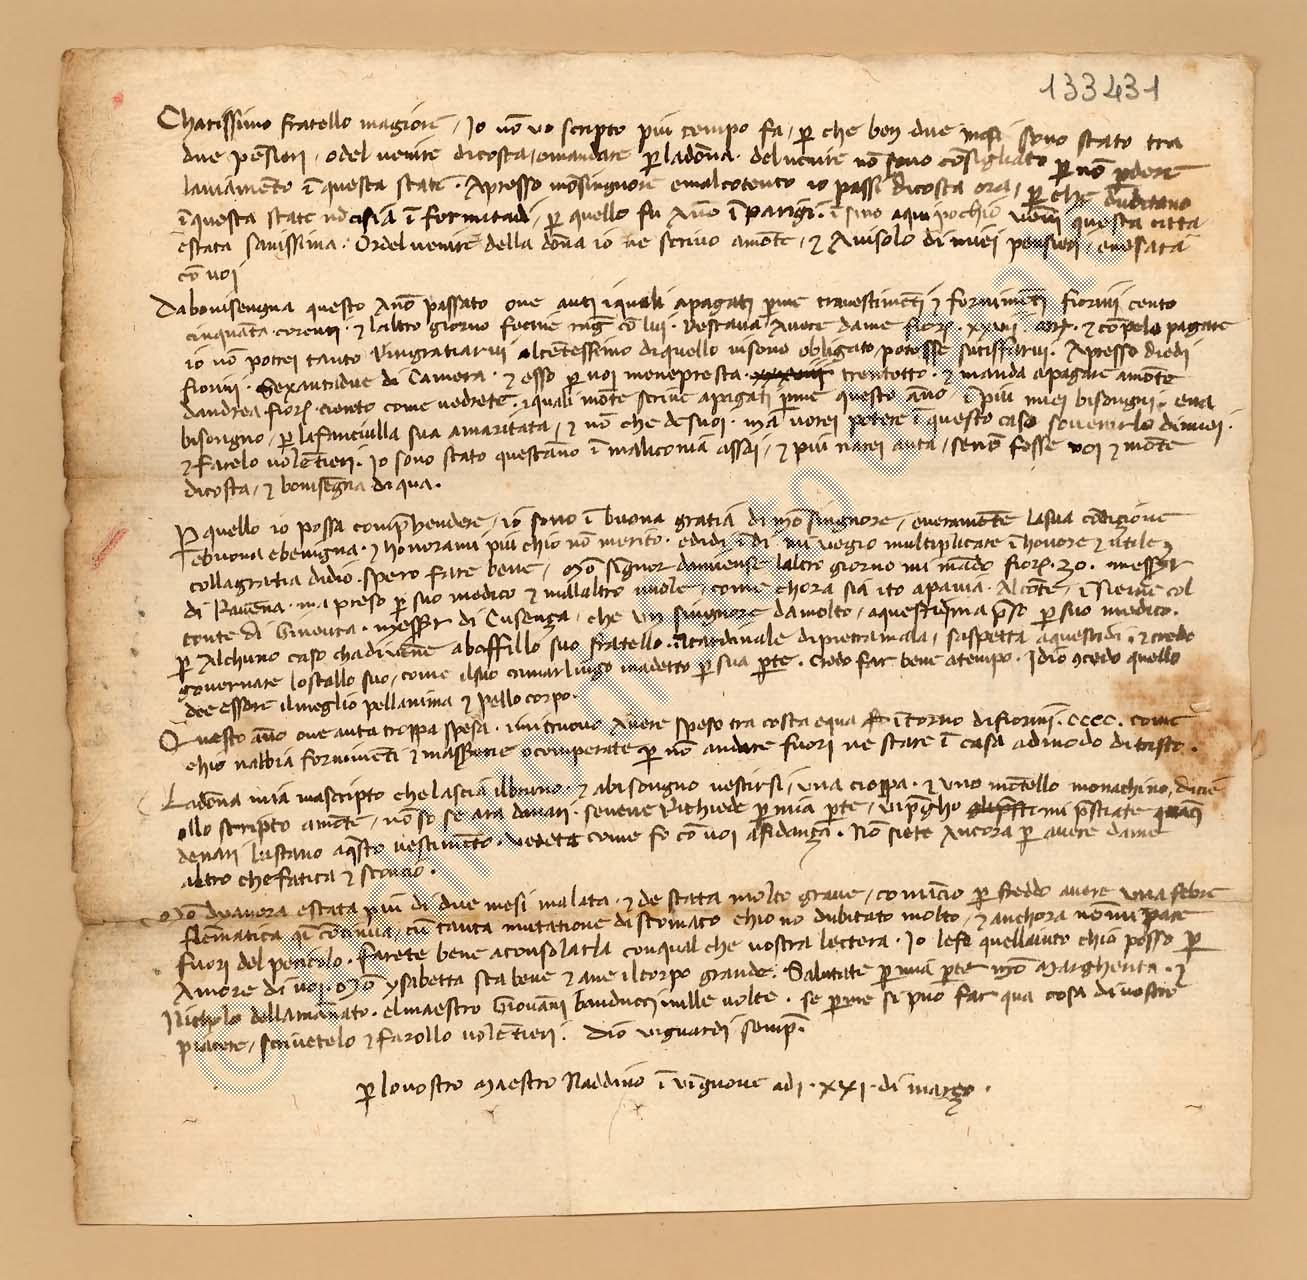 133431
Charissimo fratello magiore / Io nō vo scripto piu tempo fa / ꝑ che ben due mesi sono stato tra
due pensieri / o del venire di costa / o mandare ꝑ la dōna · del venire nō sono cōsigliato ꝑ nō ꝑdere
laviamēto ī questa state · Apresso mōsingnore e malcōtento io passi di costa ora / ꝑ che dubitano
ī questa state nō ci sia īfermitadi / ꝑ quello fu Año ī parigi · ī sino a qui pochi questa citta
e stata sanissima · Or del venire della dōna io ne scrivo a mōte / ⁊ Avisolo di miei pensieri / e ne sara
cō voi
Da bonisengna questo Año passato one auti i quali a pagati ꝑ me travestimēti ⁊ fornimēti fiorini cento
cinquāta corenti · ⁊ laltro giorno fecine rag̃ cō lui · Restava Avere da me fior̄ · xxvii · ⁊ pagare
io nō potrei tanto Ringratiarvi di quello vi sono obligato / potesse sutisfarvi · Apresso diedi
fiorini · Sexantadue di Camera · ⁊ esso ꝑ voi me ne presta · trentotto · ⁊ manda a pagare a mōte
dandrea fior̄ · ciento come vedrete / i quali mōte scrive a pagati ꝑ me questo āno / ī piu miei bisongni · era
bisongno / ꝑ la fanciulla sua a maritata / ⁊ nō che de suoi · ma vorei potere ī questo caso sovenirlo di miei ·
⁊ farelo volētieri · Io sono stato questāno ī maliconia assai / ⁊ piu narei auta / se nō fosse voi ⁊ mōte
di costa / ⁊ bonisēgna di qua ·
P quello io possa comp̄hendere / io sono ī buona gratia di mōsingnore / e veramēte la sua cōdizione
e buona e benigna · ⁊ honorami piu chio nō merito · e di dī ī dī mi vegio multiplicare ī honore ⁊ utile ⁊
colla gratia di dio spero fare bene / Mōsignor damiense laltro giorno mi mādo fior̄ · 30 · messer
di Ravēna · m a preso ꝑ suo medico ⁊ nullaltro vuole / come chora sia ito a pavia · Al cōte / īsieme col
conte di Ginevra · messer di Cusenza / che un singnore da molto / a questi di ꝑ suo medico ·
ꝑ Alchuno caso cha divēne a boffillo suo fratello · il cardinale di pietramala / saspetta a questi di · ⁊ credo
governare lo stallo suo / come il suo camarlingo ma detto ꝑ sua ꝑte · credo far bene a tempo · Idio cōcedo quello
dee essere il meglio pell anima ⁊ pello corpo ·
Questo āno one auta troppa spesa · mi truovo Avere speso tra costa e qua ītorno di fiorini · cccc · come
chio nabbia fornimēti ⁊ masserie o comperate ꝑ nō andare fuori ne stare ī casa a dimodo di tristo ·
La dōna mia ma scripto che lascia il bruno · ⁊ a bisongno vestirsi / una cioppa · ⁊ uno mātello monachino / di ciē
o llo scripto a mōte / nō so se ara danari · se ve ne Richiede ꝑ mia ꝑte / vi p̄gho mi p̄stiate quāti
denari bastano a q̄sto vestimēto · vedete come fo cō voi a fidanza · Nō siete Ancora ꝑ avere da me
altro che fatica ⁊ sconcio ·
e stata piu di due mesi malata · ⁊ de stata molto grave / comīcio ꝑ freddo avere una febre
flēmatica q̄i cōtinua / cū tanta mutatione di stomaco chi o no dubitato molto / ⁊ anchora nō mi pare
fuori del pericolo · farete bene a consolarla con qualche vostra lectera · Io le fo quell aiuto chio posso ꝑ
Amore di voi · ysabetta sta bene ⁊ ave il corpo grande · Salutate ꝑ mia ꝑte mōa Margherita · ⁊
Nicholo dell amānato · el maestro Giovāni banducci mille volte · se ꝑ me si puo far qua cosa di vostro
piacere / scrivetelo ⁊ farollo volētieri · Dio vi guardi semp̄ ·
ꝑ lo vostro Maestro Naddino ī Vignone adi · xxi · di março ·